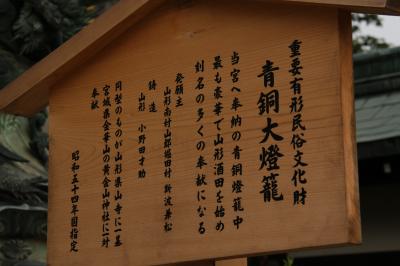 重要有形民俗文化財
青銅大燈籠
当宮へ奉納の青銅燈籠中
最も豪華で山形酒田を始め
別名の多くの奉献になる
発願主
山形南村山郡堀田村 斯波兼松
鋳造
山形 小野田才助
同型のものが山形県山寺に一基
宮城県金華山の黄金山神社に一対
奉献
昭和五十四年酉指定